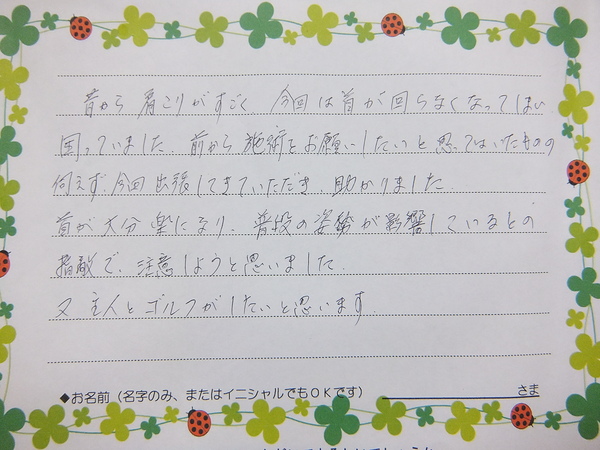 昔から 肩こりがすごく 今回は首が回らなくなってしまい
困っていました。前から施術をお願いしたいと思ってはいたものの
伺えず、今回出張してきていただき、助かりました。
首が大分楽になり、普段の姿勢が影響しているとの
指摘で、注意しようと思いました。
又 主人とゴルフがしたいと思います。
◆お名前(名字のみ、またはイニシャルでもOKです) さま